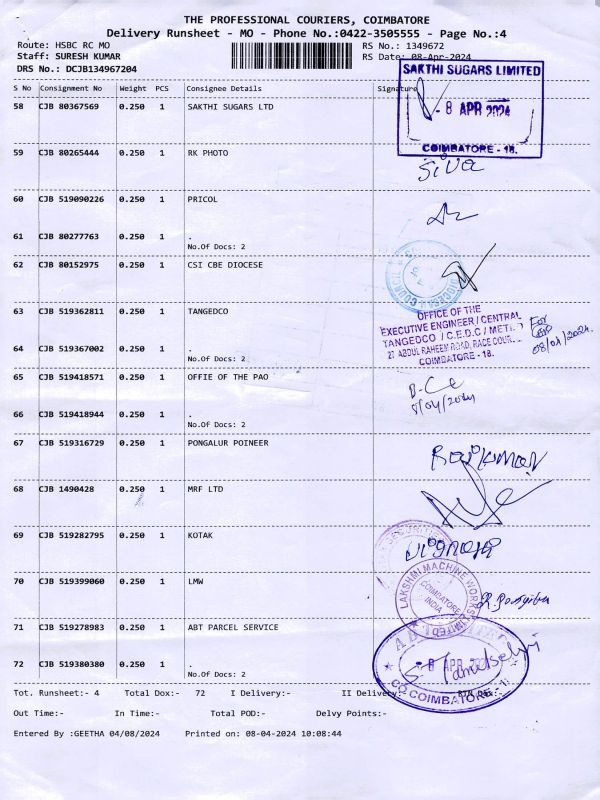 THE PROFESSIONAL COURIERS, COIMBATORE
Delivery Runsheet - MO - Phone No.:0422-3505555 - Page No.:4
Route: HSBC RC MO RS No.: 1349672
Staff: SURESH KUMAR RS Date: 08-Apr-2024
DRS No.: DCJB134967204
S No Consignment No Weight PCS Consignee Details Signature
58 CJB 80367569 0.250 1 SAKTHI SUGARS LTD
SAKTHI SUGARS LIMITED
- 8 APR 2024
COIMBATORE - 18.
59 CJB 80265444 0.250 1 RK PHOTO
Siva
60 CJB 519090226 0.250 1 PRICOL
61 CJB 80277763 0.250 1 .
No.Of Docs: 2
62 CJB 80152975 0.250 1 CSI CBE DIOCESE
63 CJB 519362811 0.250 1 TANGEDCO
OFFICE OF THE
EXECUTIVE ENGINEER / CENTRAL
TANGEDCO / C.E.D.C / METRO
27 ABDUL RAHEEM ROAD, RACE COUR
COIMBATORE - 18.
For
08/04/2024
64 CJB 519367002 0.250 1 .
No.Of Docs: 2
65 CJB 519418571 0.250 1 OFFIE OF THE PAO
8/04/2024
66 CJB 519418944 0.250 1 .
No.Of Docs: 2
67 CJB 519316729 0.250 1 PONGALUR POINEER
Rajkumar
68 CJB 1490428 0.250 1 MRF LTD
69 CJB 519282795 0.250 1 KOTAK
70 CJB 519399060 0.250 1 LMW
LAKSHMI MACHINE WORKS LIMITED
COIMBATORE
INDIA
71 CJB 519278983 0.250 1 ABT PARCEL SERVICE
8 APR
CO COIMBATORE - 18
72 CJB 519380380 0.250 1 .
No.Of Docs: 2
Tot. Runsheet:- 4 Total Dox:- 72 I Delivery:- II Delivery:-
Out Time:- In Time:- Total POD:- Delvy Points:-
Entered By :GEETHA 04/08/2024 Printed on: 08-04-2024 10:08:44